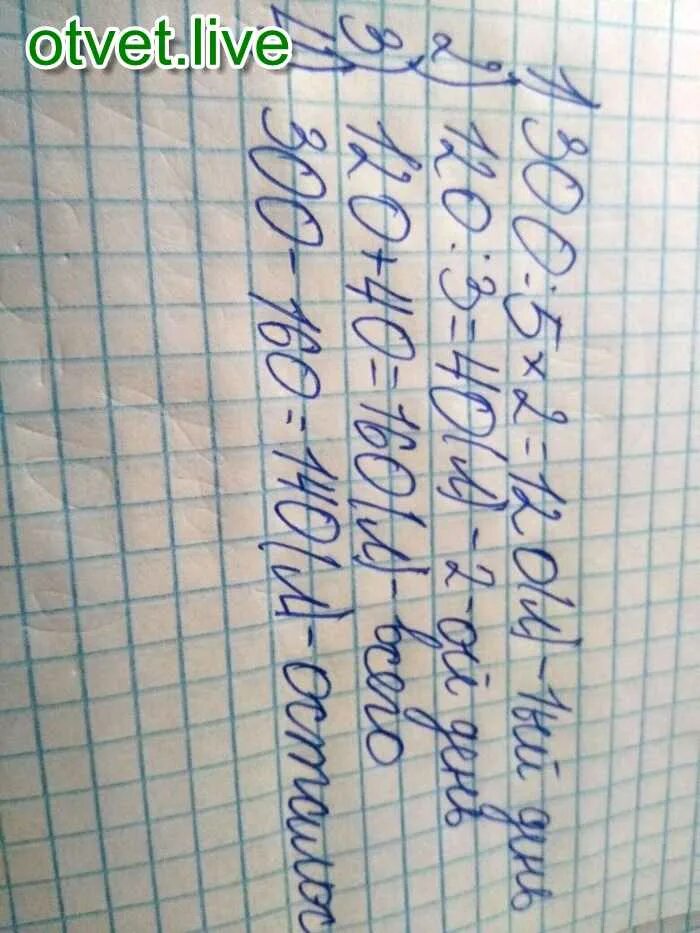 otvet.live
1) 300:5×2=120(м)-1ый день
2) 120:3=40(м)-2-ой день
3) 120+40=160(м)-всего
4) 300-160=140(м)-осталос